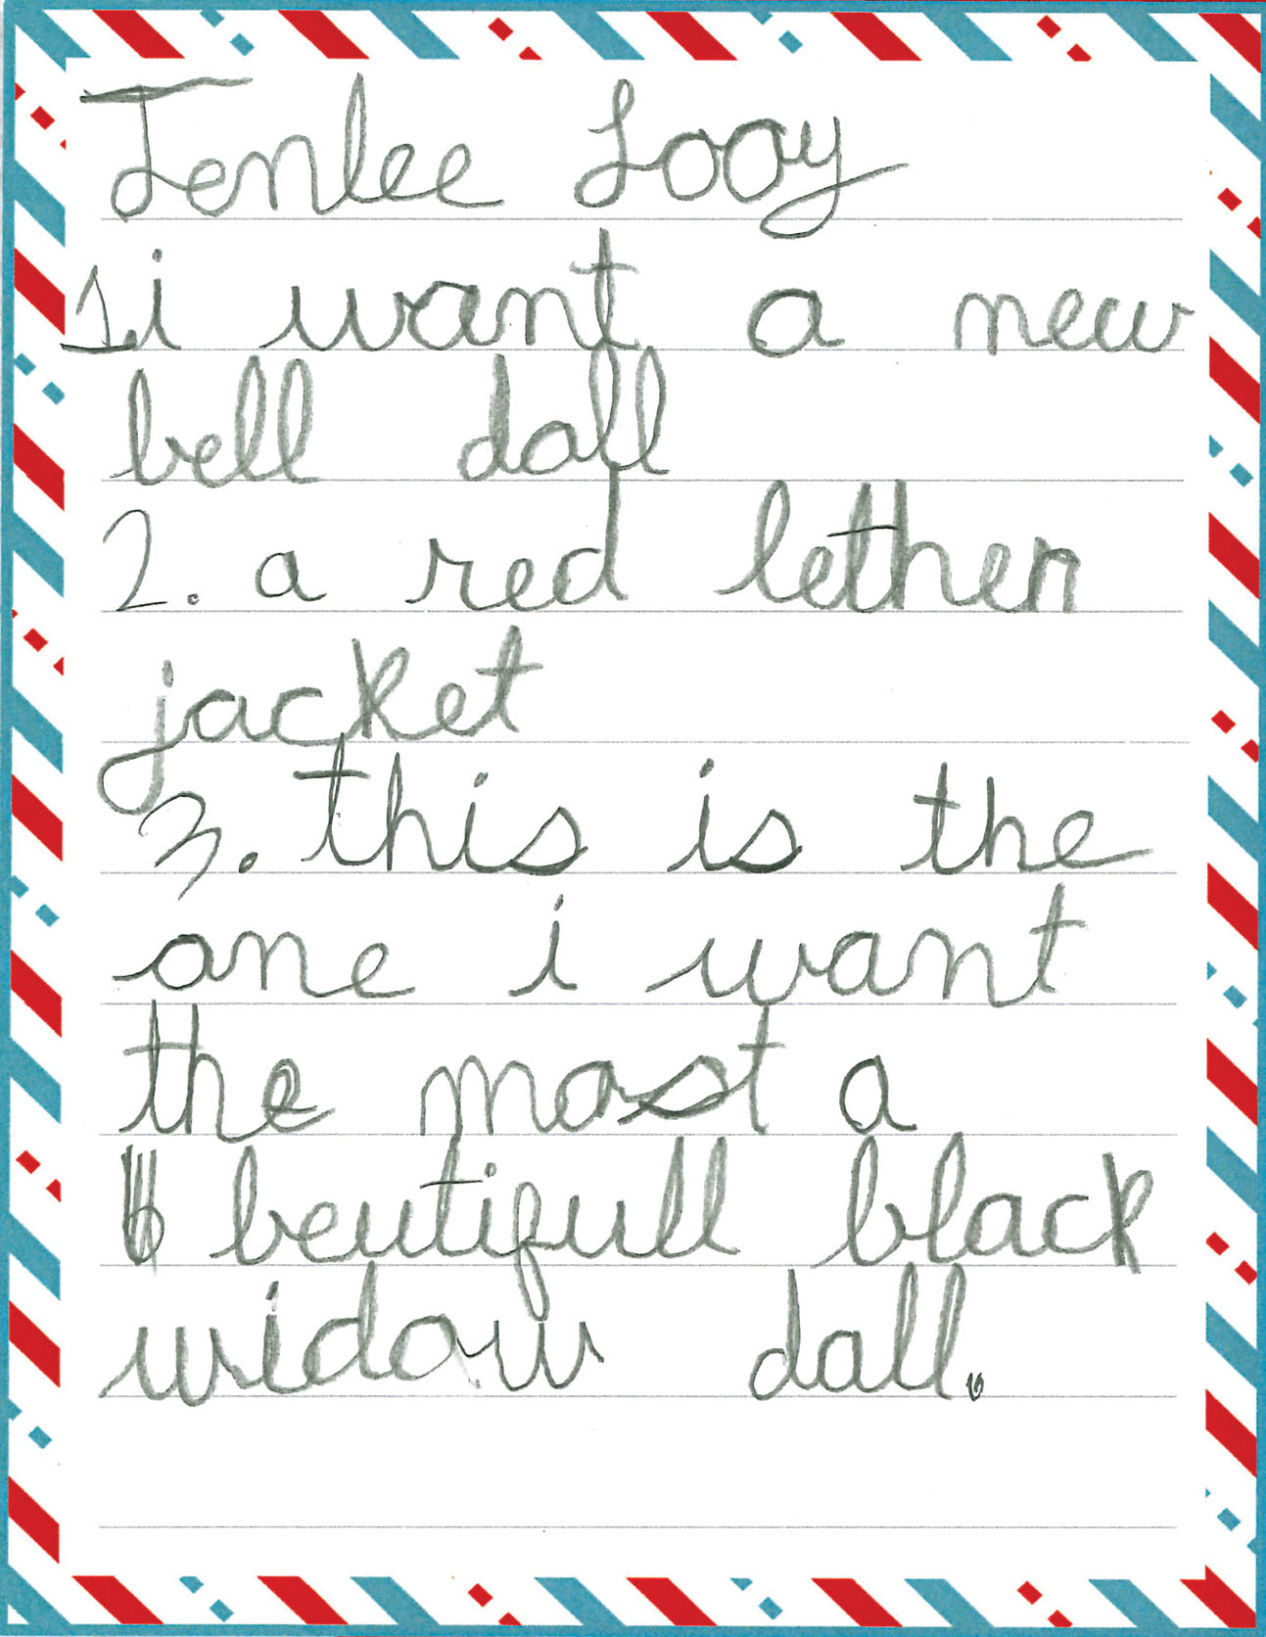 Tenlee Looy
1. i want a new
bell doll
2. a red lether
jacket
3. this is the
one i want
the most a
beutifull black
widow doll.